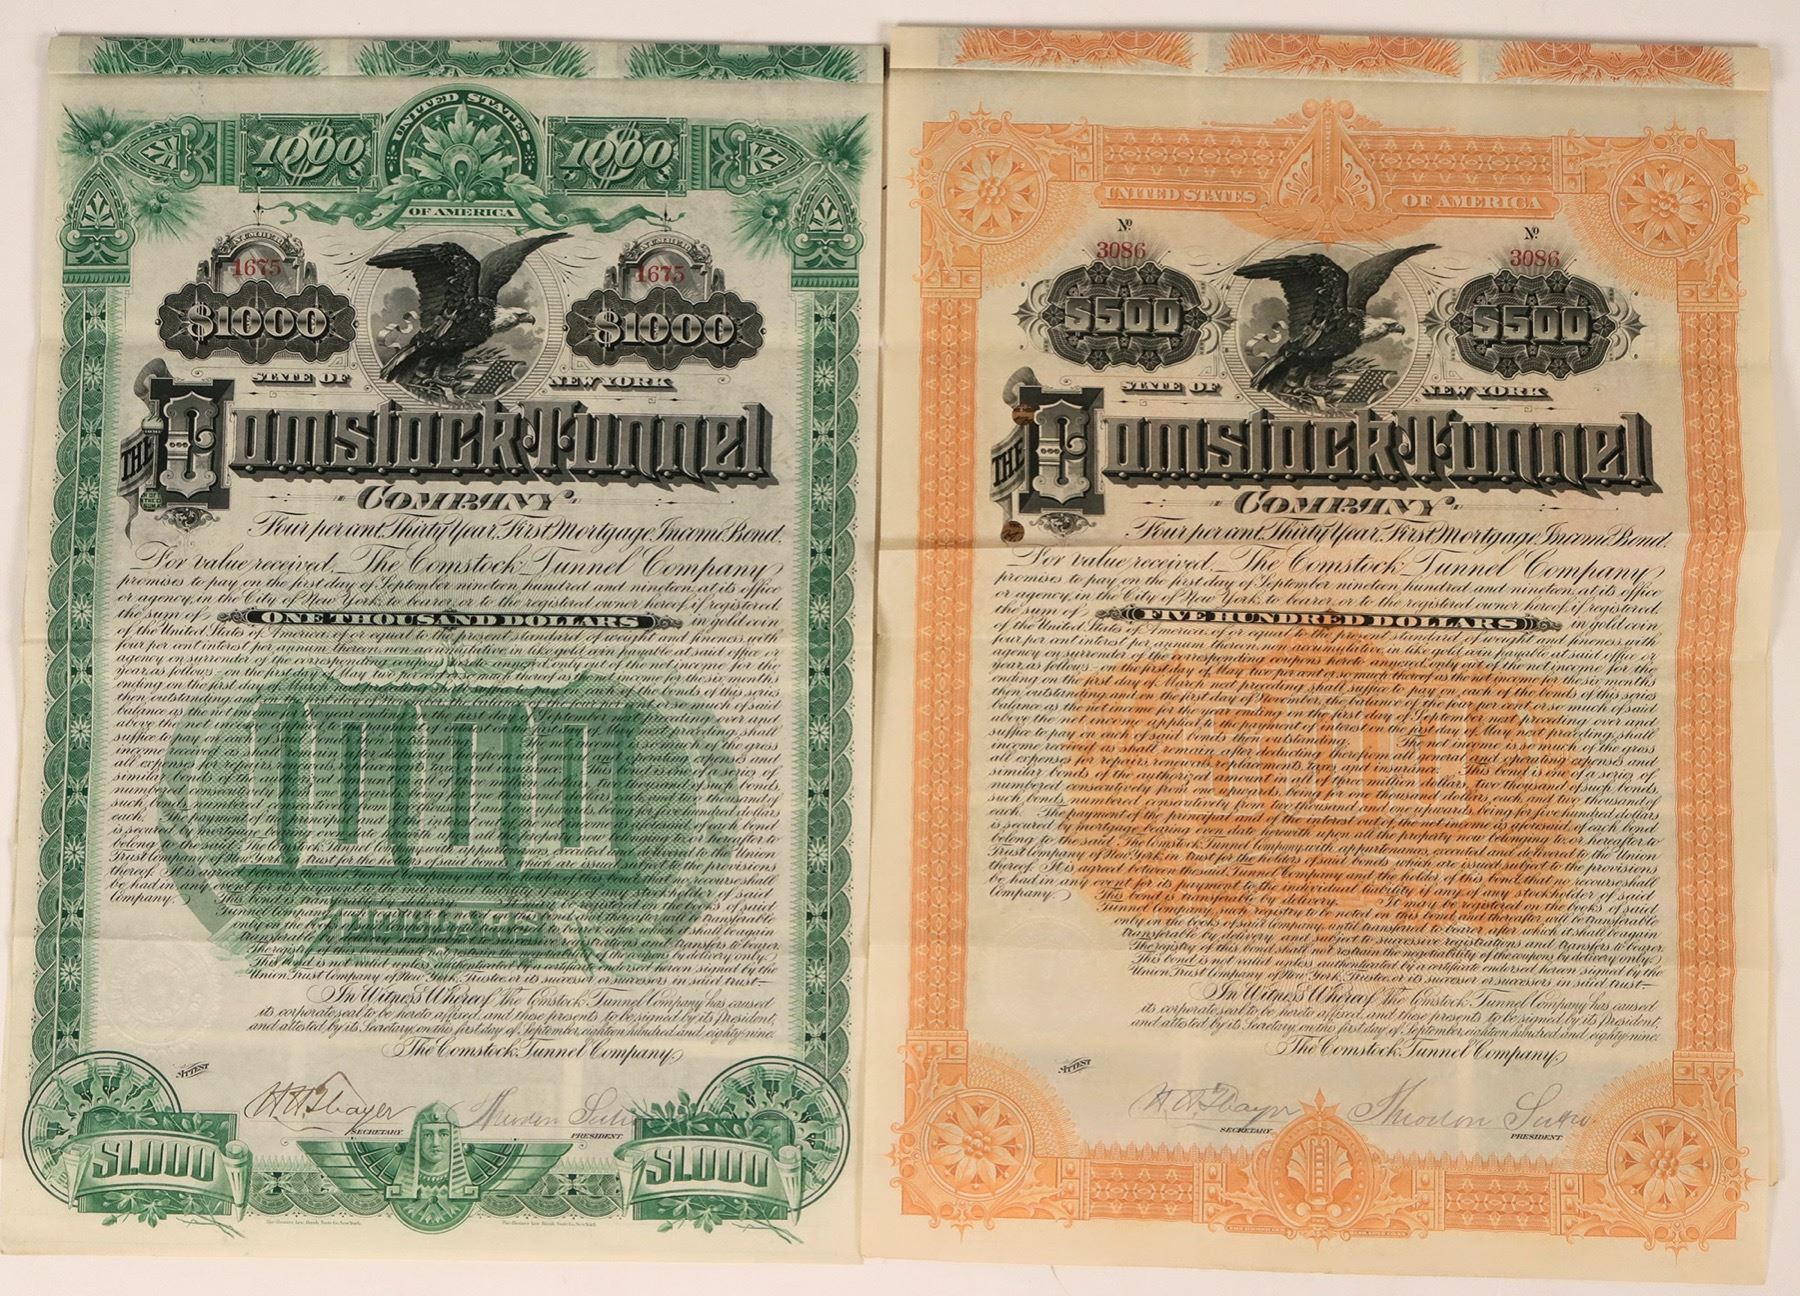 1000
UNITED STATES
1000
OF AMERICA
NUMBER
1675
NUMBER
1675
$1000
$1000
STATE OF
NEW YORK
THE Comstock Tunnel
COMPANY
Four per cent, Thirty Year, First Mortgage Income Bond.
For value received, The Comstock Tunnel Company
promises to pay on the first day of September nineteen hundred and nineteen, at its office
or agency, in the City of New York, to bearer, or to the registered owner hereof, if registered,
the sum of ONE THOUSAND DOLLARS in gold coin
of the United States of America, of or equal to the present standard of weight and fineness, with
four per cent interest per annum thereon, non accumulative, in like gold coin payable at said office or
agency on surrender of the corresponding coupons hereto annexed, only out of the net income for the
year, as follows: on the first day of May two per cent or so much thereof as the net income for the six months
ending on the first day of March next preceding shall suffice to pay on each of the bonds of this series
then outstanding, and on the first day of November, the balance of the four per cent or so much of said
balance as the net income for the year ending on the first day of September next preceding over and
above the net income applied to the payment of interest on the first day of May next preceding, shall
suffice to pay on each of said bonds then outstanding. The net income is so much of the gross
income received as shall remain after deducting therefrom all general and operating expenses and
all expenses for repairs, renewals, replacements, taxes and insurance. This bond is one of a series of
similar bonds of the authorized amount in all of three million dollars, two thousand of such bonds,
numbered consecutively from one upwards, being for one thousand dollars each, and two thousand of
such bonds, numbered consecutively from two thousand and one upwards, being for five hundred dollars
each. The payment of the principal and of the interest out of the net income as aforesaid, of each bond
is secured by mortgage bearing even date herewith upon all the property now belonging to, or hereafter to
belong to the said The Comstock Tunnel Company, with appurtenances, executed and delivered to the Union
Trust Company of New York, in trust for the holders of said bonds which are issued, subject to the provisions
thereof. It is agreed between the said Tunnel Company and the holder of this bond, that no recourse shall
be had in any event for its payment to the individual liability if any of any stockholder of said
Company. This bond is transferable by delivery. It may be registered on the books of said
Tunnel Company, such registry to be noted on this bond and thereafter will be transferable
only on the books of said Company, until transferred to bearer after which it shall be again
transferable by delivery and subject to successive registrations and transfers to bearer.
The registry of this bond shall not restrain the negotiability of the coupons by delivery only.
This bond is not valid unless authenticated by a certificate endorsed hereon signed by the
Union Trust Company of New York, Trustee, or its successor or successors in said trust.
In Witness Whereof the Comstock Tunnel Company has caused
its corporate seal to be hereto affixed, and these presents to be signed by its President,
and attested by its Secretary, on the first day of September, eighteen hundred and eighty-nine.
The Comstock Tunnel Company,
ATTEST
H H Thayer
SECRETARY
Theodore Sutro
PRESIDENT
$1,000
$1,000
The Homer Lee Bank Note Co. New York.
The Homer Lee Bank Note Co. New York.
UNITED STATES
OF AMERICA
No
3086
No
3086
$500
$500
STATE OF
NEW YORK
THE Comstock Tunnel
COMPANY
Four per cent, Thirty Year, First Mortgage Income Bond.
For value received, The Comstock Tunnel Company
promises to pay on the first day of September nineteen hundred and nineteen, at its office
or agency, in the City of New York, to bearer, or to the registered owner hereof, if registered,
the sum of FIVE HUNDRED DOLLARS in gold coin
of the United States of America, of or equal to the present standard of weight and fineness, with
four per cent interest per annum thereon, non accumulative, in like gold coin payable at said office or
agency on surrender of the corresponding coupons hereto annexed, only out of the net income for the
year, as follows: on the first day of May two per cent or so much thereof as the net income for the six months
ending on the first day of March next preceding shall suffice to pay on each of the bonds of this series
then outstanding, and on the first day of November, the balance of the four per cent or so much of said
balance as the net income for the year ending on the first day of September next preceding over and
above the net income applied to the payment of interest on the first day of May next preceding, shall
suffice to pay on each of said bonds then outstanding. The net income is so much of the gross
income received as shall remain after deducting therefrom all general and operating expenses and
all expenses for repairs, renewals, replacements, taxes and insurance. This bond is one of a series of
similar bonds of the authorized amount in all of three million dollars, two thousand of such bonds,
numbered consecutively from one upwards, being for one thousand dollars, each, and two thousand of
such bonds, numbered consecutively from two thousand and one upwards being for five hundred dollars
each. The payment of the principal and of the interest out of the net income as aforesaid, of each bond
is secured by mortgage bearing even date herewith upon all the property now belonging to, or hereafter to
belong to the said The Comstock Tunnel Company, with appurtenances, executed and delivered to the Union
Trust Company of New York, in trust for the holders of said bonds which are issued, subject to the provisions
thereof. It is agreed between the said Tunnel Company and the holder of this bond, that no recourse shall
be had in any event for its payment to the individual liability if any of any stockholder of said
Company. This bond is transferable by delivery. It may be registered on the books of said
Tunnel Company, such registry to be noted on this bond and thereafter will be transferable
only on the books of said Company, until transferred to bearer after which it shall be again
transferable by delivery, and subject to successive registrations and transfers to bearer.
The registry of this bond shall not restrain the negotiability of the coupons by delivery only.
This bond is not valid unless authenticated by a certificate endorsed hereon signed by the
Union Trust Company of New York, Trustee, or its successor or successors in said trust.
In Witness Whereof the Comstock Tunnel Company has caused
its corporate seal to be hereto affixed, and these presents to be signed by its President,
and attested by its Secretary, on the first day of September, eighteen hundred and eighty-nine.
The Comstock Tunnel Company,
ATTEST
H H Thayer
SECRETARY
Theodore Sutro
PRESIDENT